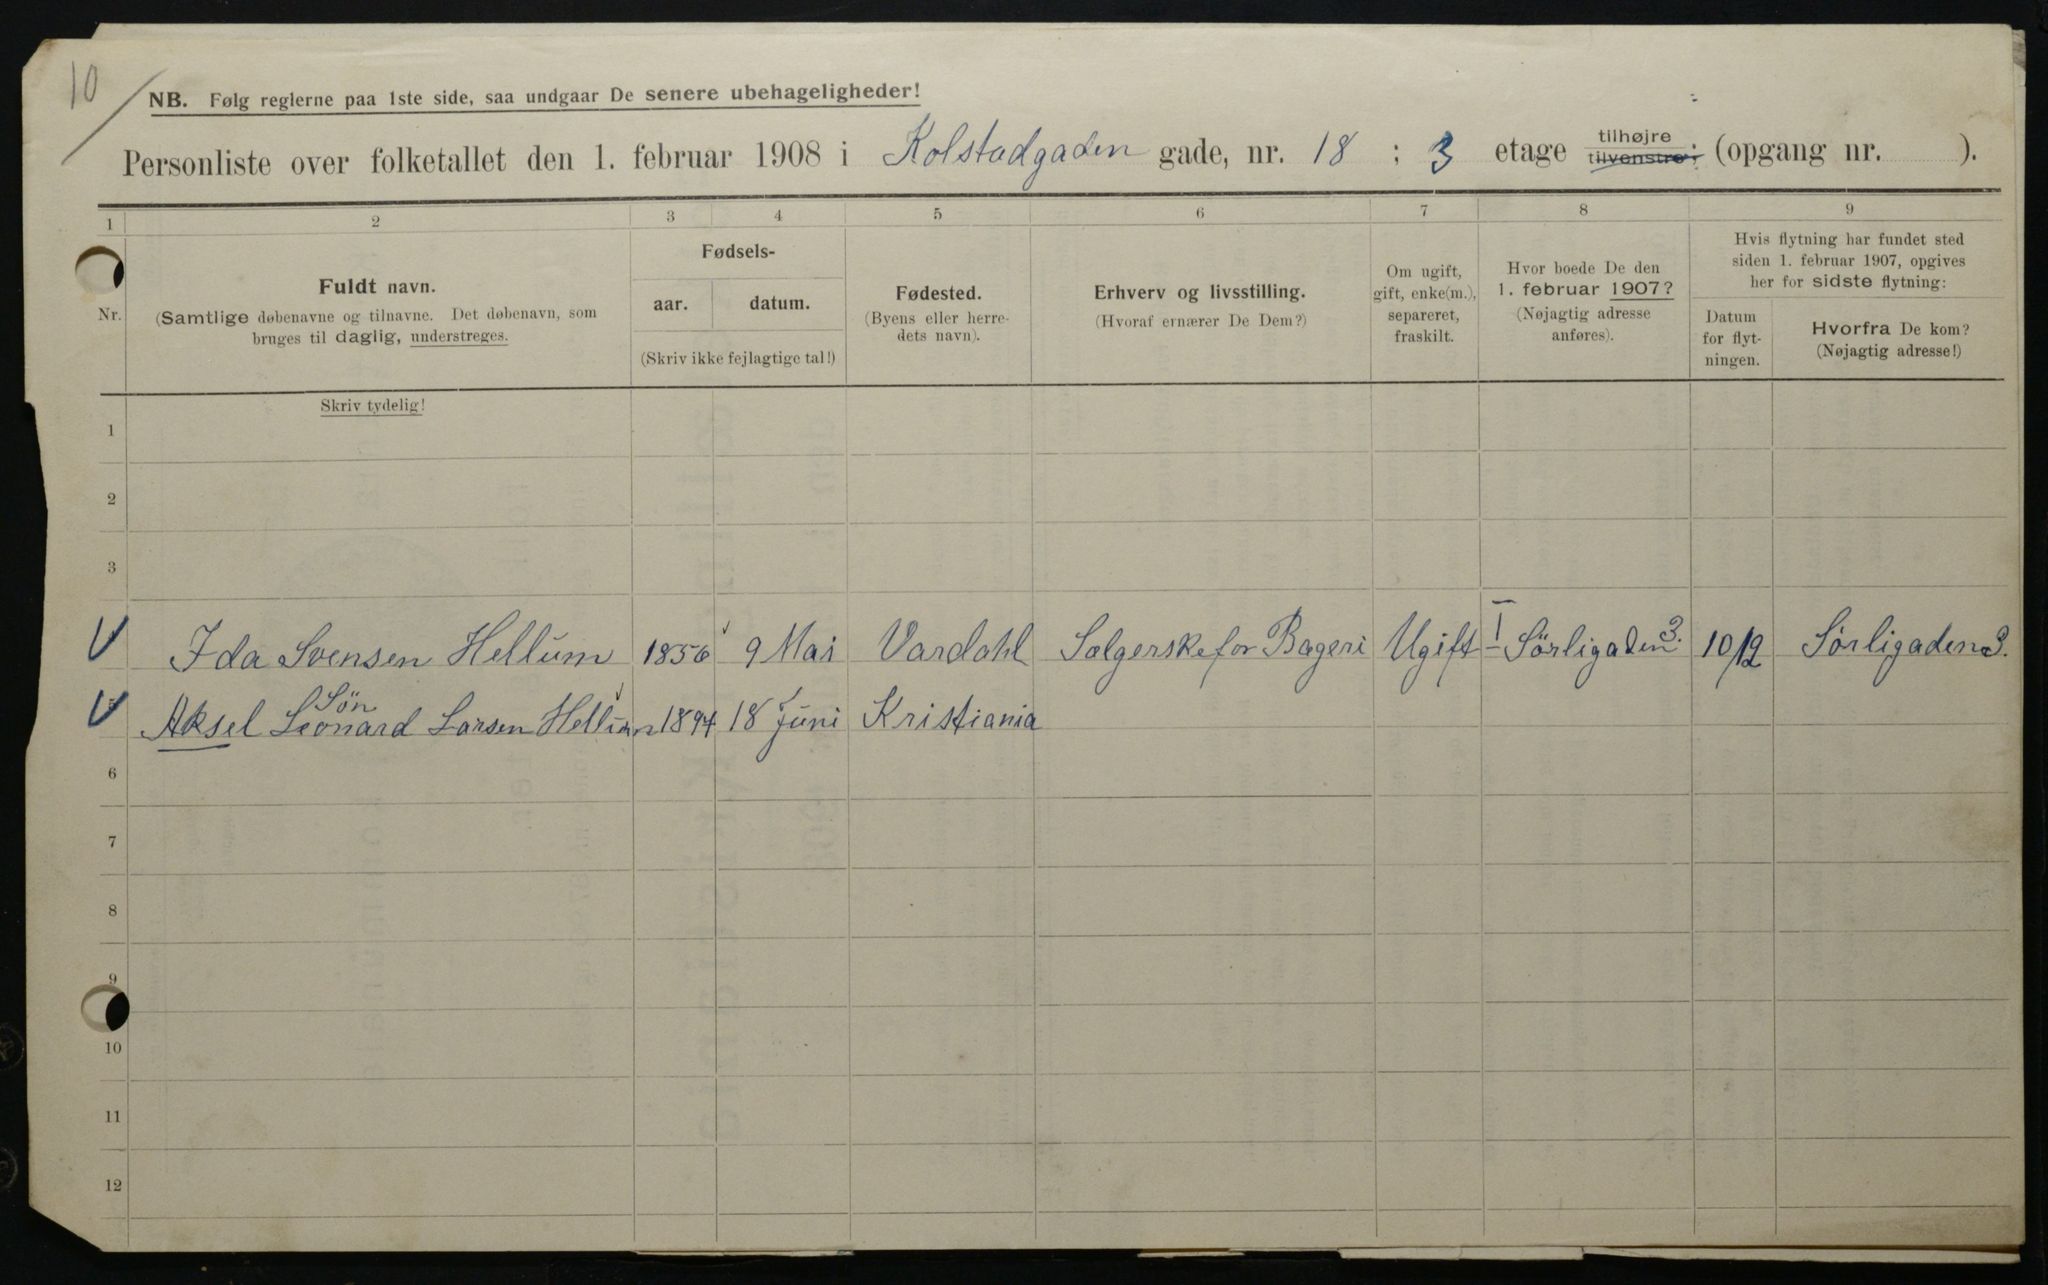 10
NB. Følg reglerne paa 1ste side, saa undgaar De senere ubehageligheder!
Personliste over folketallet den 1. februar 1908 i Kolstadgaden gade, nr. 18 ; 3 etage tilhøjre tilvenstre; (opgang nr. ).
1 2 3 4 5 6 7 8 9
Nr.
Fuldt navn.
(Samtlige døbenavne og tilnavne. Det døbenavn, som
bruges til daglig, understreges.
Fødsels-
aar. datum.
(Skriv ikke fejlagtige tal!)
Fødested.
(Byens eller herre-
dets navn).
Erhverv og livsstilling.
(Hvoraf ernærer De Dem?)
Om ugift,
gift, enke(m.),
separeret,
fraskilt.
Hvor boede De den
1. februar 1907?
(Nøjagtig adresse
anføres).
Hvis flytning har fundet sted
siden 1. februar 1907, opgives
her for sidste flytning:
Datum
for flyt-
ningen.
Hvorfra De kom?
(Nøjagtig adresse!)
Skriv tydelig!
1
2
3
Ida Svensen Hellum 1856 9 Mai Vardahl Sælgerske for Bageri Ugift I Sörligaden 3. 10/2 Sörligaden 3.
Sön
Aksel Leonard Larsen Hellum 1894 18 Juni Kristiania
6
7
8
9
10
11
12